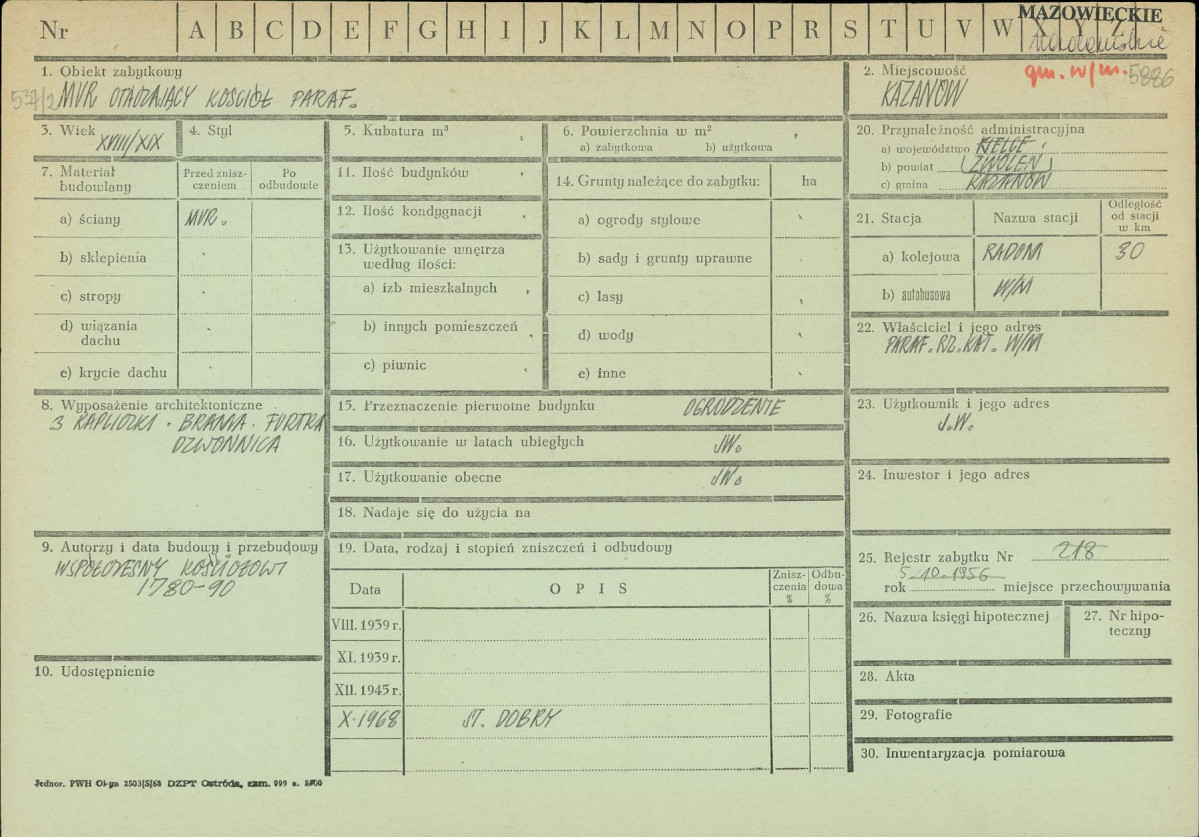 Nr A B C D E F G H I J K L M N O P R S T U V W X Y Z
MAZOWIECKIE
radomskie
gm. w/m. 5886
1. Obiekt zabytkowy
537/2 MUR OTACZAJĄCY KOŚCIÓŁ PARAF.
2. Miejscowość
KAZANÓW
3. Wiek
XVIII/XIX
4. Styl
5. Kubatura m³
6. Powierzchnia w m²
a) zabytkowa b) użytkowa
20. Przynależność administracyjna
a) województwo KIELCE
b) powiat (ZWOLEŃ)
c) gmina KAZANÓW
7. Materiał budowlany
Przed znisz-
czeniem
Po
odbudowie
a) ściany MUR.
b) sklepienia
c) stropy
d) wiązania
dachu
e) krycie dachu
11. Ilość budynków
12. Ilość kondygnacji
13. Użytkowanie wnętrza
według ilości:
a) izb mieszkalnych
b) innych pomieszczeń
c) piwnic
14. Grunty należące do zabytku: ha
a) ogrody stylowe
b) sady i grunty uprawne
c) lasy
d) wody
e) inne
21. Stacja Nazwa stacji
Odległość
od stacji
w km
a) kolejowa RADOM 30
b) autobusowa W/M
22. Właściciel i jego adres
PARAF. RZ. KAT. W/M
8. Wyposażenie architektoniczne
3 KAPLICZKI. BRAMA. FURTKA
DZWONNICA
15. Przeznaczenie pierwotne budynku OGRODZENIE
16. Użytkowanie w latach ubiegłych JW.
17. Użytkowanie obecne JW.
18. Nadaje się do użycia na
23. Użytkownik i jego adres
J.W.
24. Inwestor i jego adres
9. Autorzy i data budowy i przebudowy
WSPÓŁCZESNY KOŚCIOŁOWI
1780-90
19. Data, rodzaj i stopień zniszczeń i odbudowy
Data OPIS
Znisz-
czenia
%
Odbu-
dowa
%
VIII. 1939 r.
XI. 1939 r.
XII. 1945 r.
X. 1968 ST. DOBRY
25. Rejestr zabytku Nr 218
5-10-1956
rok miejsce przechowywania
26. Nazwa księgi hipotecznej
27. Nr hipo-
teczny
10. Udostępnienie
28. Akta
29. Fotografie
30. Inwentaryzacja pomiarowa
Jednor. PWH Ol-yn 2503|S|68 DZPT Ostróda, zam. 999 z.